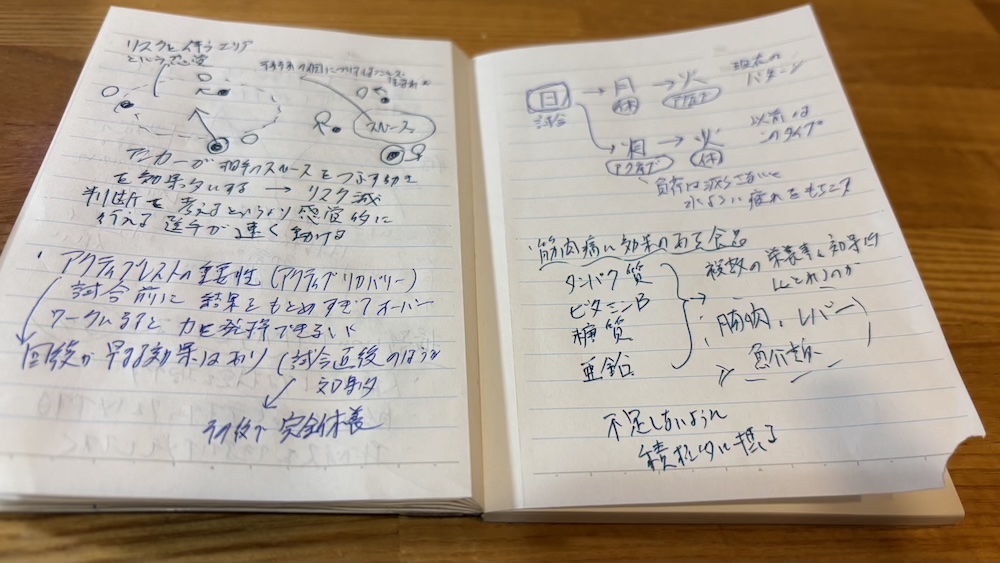 リスクを伴うエリア
という感覚
スペース
アンカーが相手のスペースをつぶす動き
を効果的にする → リスク減
判断を考えるというより感覚的に
行える選手が速く動ける
・アクティブレストの重要性(アクティブリカバリー)
試合前に結果をもとめすぎてオーバー
ワークになると力を発揮できない
回復が早まる効果はあり(試合直後のほうが
効果的
その後で完全休養
日 → 月 → 火 現在の
試合 休 アクティブ パターン
月 → 火 以前は
アクティブ 休 このタイプ
負荷は減らさないと
次のように疲れをもちこす
・筋肉痛に効果のある食品
タンパク質
ビタミンB
糖質
亜鉛
→ 複数の栄養素を効果的
にとれるのが
(豚肉、レバー)
魚介類
不足しないように
積極的に摂る